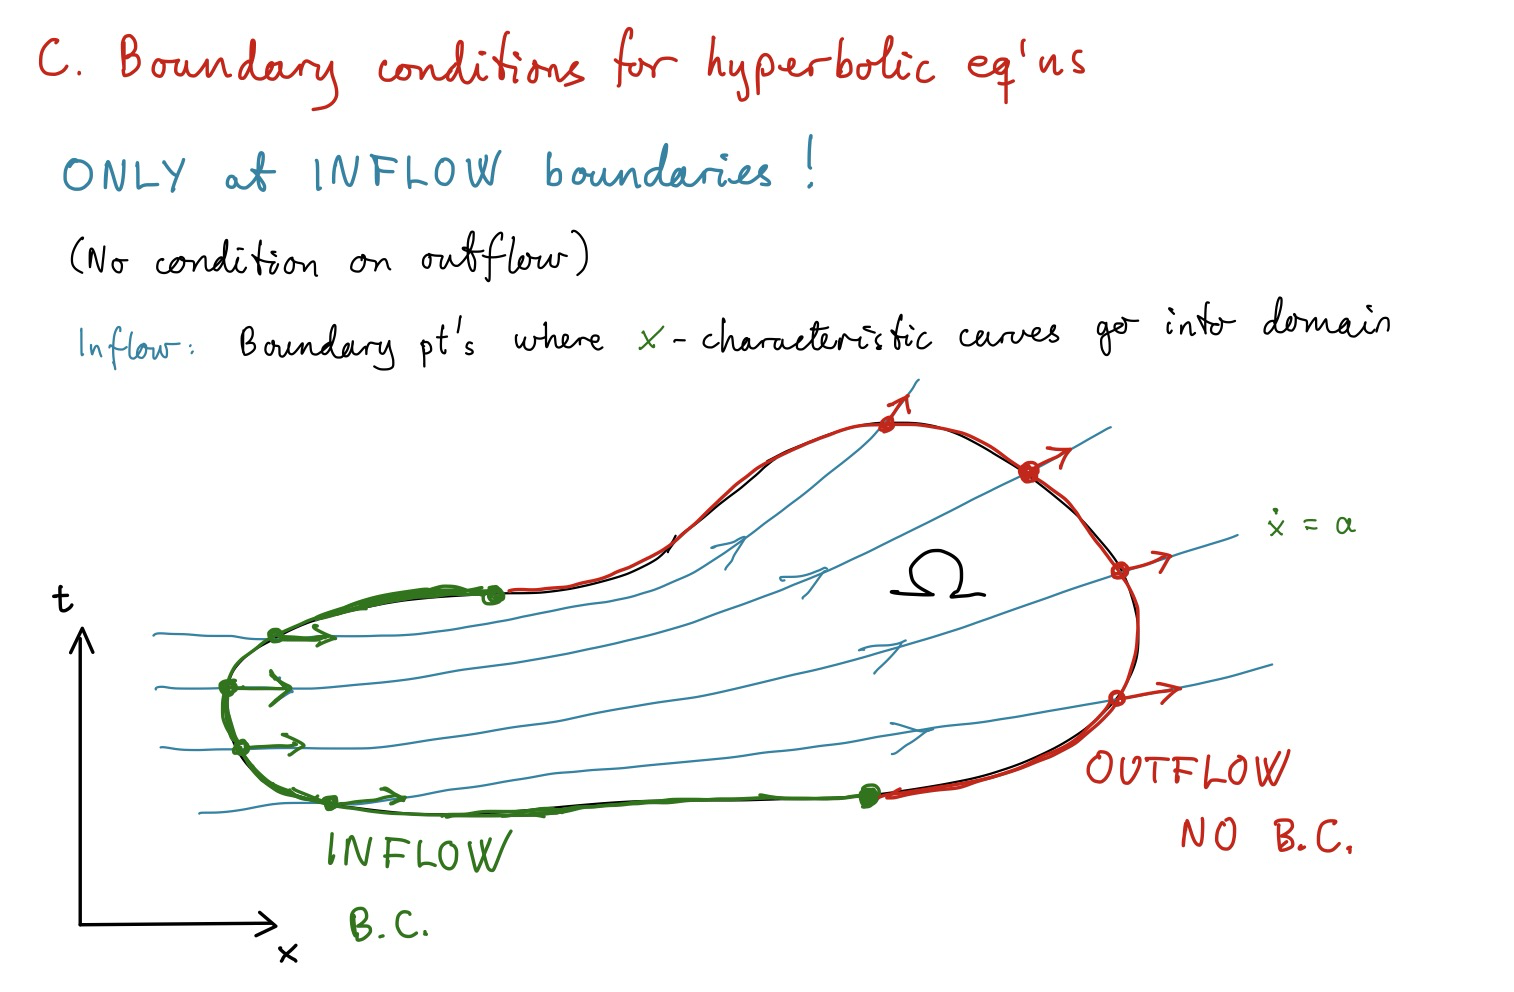 C. Boundary conditions for hyperbolic eq'ns
ONLY at INFLOW boundaries!
(No condition on outflow)
Inflow: Boundary pt's where x-characteristic curves go into domain
ẋ = a
Ω
t
OUTFLOW
NO B.C.
INFLOW
B.C.
x